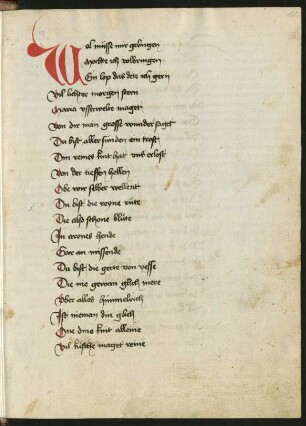 Wol müsse mir gelingen
Mochte ich volbringen
Ein lop das dete ich gern
Vil liehter morgen stern
Maria vsserwelte maget
Von dir man grosse wunder saget
Du bist aller sunden ein trost
Din reines kint hat vns erlost
Von der tieffen hellen
Obe wir selber wellent
Du bist die reyne rüte
Die also schone blüte
In arones hende
Gar an missende
Du bist die gerte von yesse
Die nie gewan glich mere
Vber alles himmelrich
Ist nieman din glich
One dine kint alleine
Vil küsche maget reine